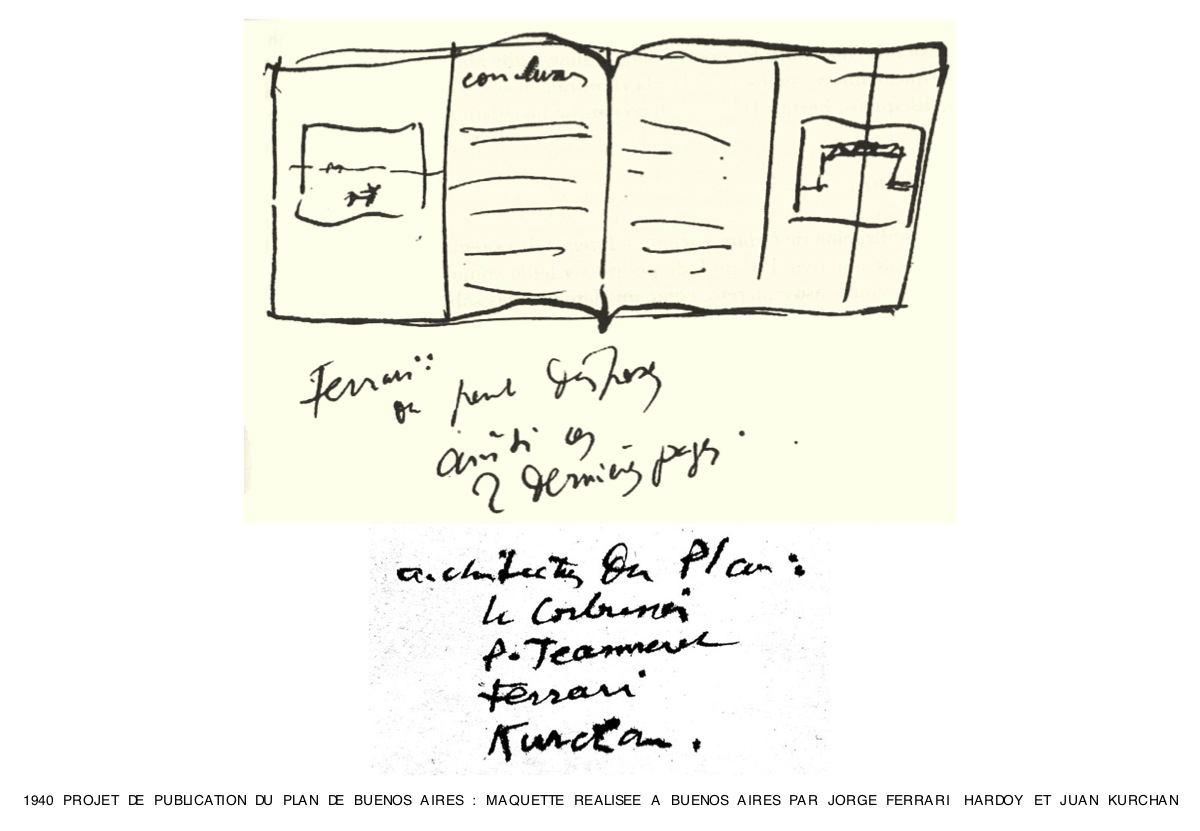 conclusion
Ferrari :
on peut disposer
ainsi ces
2 dernières pages .
architectes du Plan :
Le Corbusier
P. Jeanneret
Ferrari
Kurchan .
1940 PROJET DE PUBLICATION DU PLAN DE BUENOS AIRES : MAQUETTE REALISEE A BUENOS AIRES PAR JORGE FERRARI HARDOY ET JUAN KURCHAN